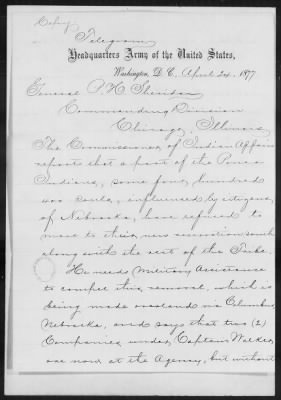 Copy
Telegram
Headquarters Army of the United States,
Washington, D.C. April 24. 1877
General P. H. Sheridan
Commanding Division
Chicago, Illinois
The Commissioner of Indian Affairs
reports that a part of the Ponca
Indians, some four hundred
400 souls, influenced by citizens
of Nebraska, have refused to
move to their new reservation south
along with the rest of the Tribe.
He needs Military Assistance
to compel this removal, which is
being made overland via Columbus
Nebraska, and says that two (2)
Companies under Captain Walker
are now at the Agency, but without